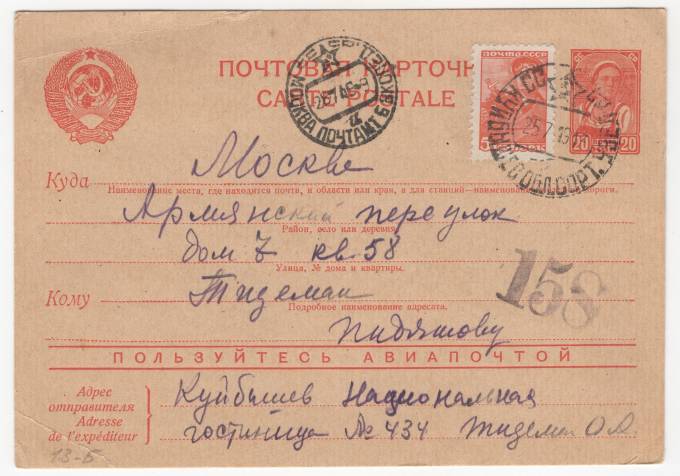 ПОЧТОВАЯ КАРТОЧКА
CARTE POSTALE
ПОЧТА СССР
20 20
МОСКВА ПОЧТАМТ
Москва
Куда
Наименование места, где находится почта, и области или края, а для станций—наименование
Армянский переулок
Район, село или деревня
дом 7 кв. 58
Улица, № дома и квартиры.
Кому Тидеман
Подробное наименование адресата.
158
ПОЛЬЗУЙТЕСЬ АВИАПОЧТОЙ
Адрес
отправителя
Adresse
de l'expéditeur
Куйбышев Национальная
гостиница № 434 Тидеман О.А.
13-Б